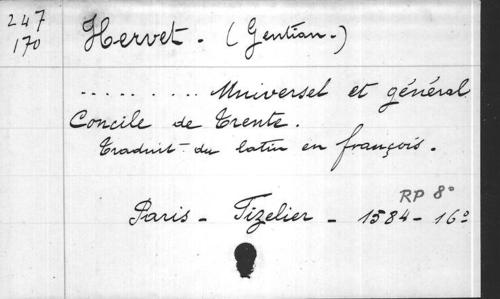 247
170
Hervet. (Gentian.)
......... Universel et général
Concile de Trente.
Traduit du latin en françois.
RP 8°
Paris - Tizelier - 1584 - 16º